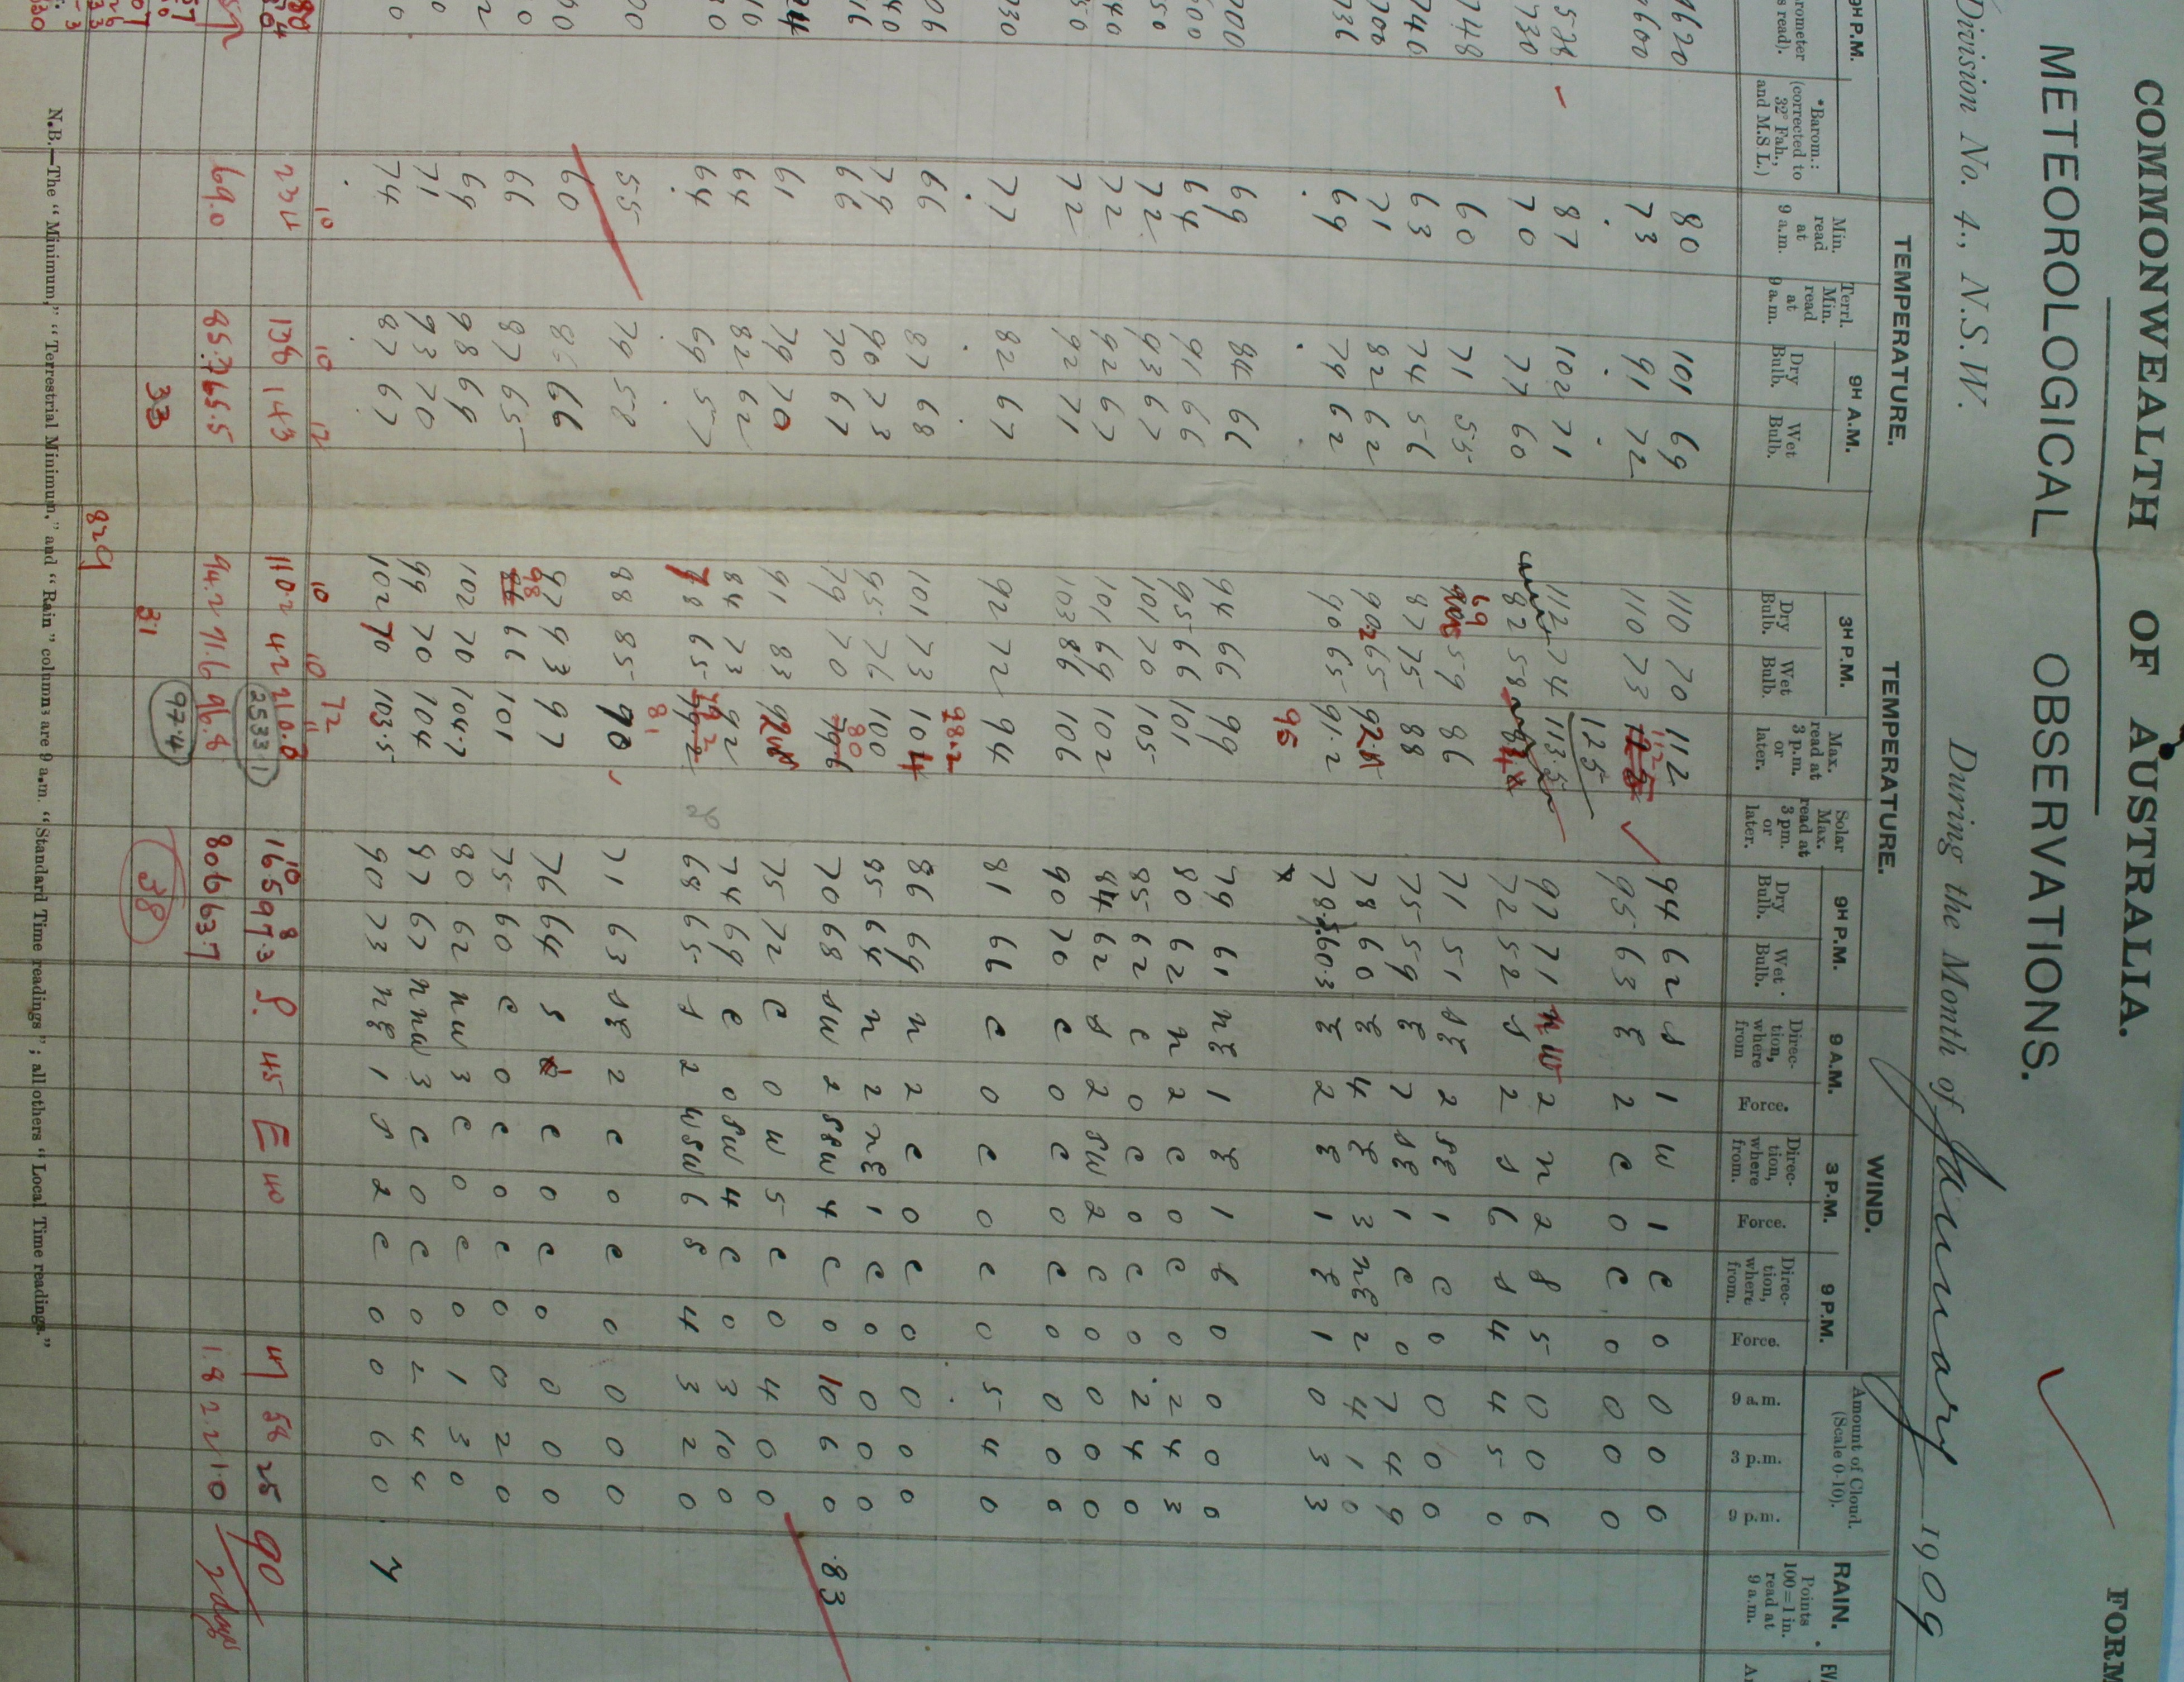 COMMONWEALTH OF AUSTRALIA.
FORM
METEOROLOGICAL OBSERVATIONS.
Division No. 4., N.S.W. During the Month of January 1909
9H P.M. TEMPERATURE. TEMPERATURE. WIND. Amount of Cloud. (Scale 0-10). RAIN.
9H A.M. 3H P.M. 9H P.M. 9 A.M. 3 P.M. 9 P.M.
*Barom.: (corrected to 32° Fah., and M.S.L.) Min. read at 9 a.m. Terrl. Min. read at 9 a.m. Dry Bulb. Wet Bulb. Dry Bulb. Wet Bulb. Max. read at 3 p.m. or later. Solar Max. read at 3 pm. or later. Dry Bulb. Wet Bulb. Direction, where from Force. Direction, where from. Force. Direction, where from. Force. 9 a.m. 3 p.m. 9 p.m. Points 100=1 in. read at 9 a.m.
620 80 101 69 110 70 112 94 62 S 1 W 1 C 0 0 0 0
600 73 91 72 110 73 112 95 63 E 2 C 0 C 0 0 0 0
125
528 87 102 71 112 74 113.5 97 71 NW 2 N 2 S 5 0 0 6
730 70 77 60 82 58 72 52 S 2 S 6 S 4 4 5 0
748 60 71 55 59 86 71 51 SE 2 SE 1 C 0 0 0 0
746 63 74 56 87 75 88 75 59 E 7 SE 1 C 0 7 4 9
700 71 82 62 90.2 65 78 60 E 4 E 3 NE 2 4 1 0
736 69 74 62 90 65 91.2 78.5 60.3 E 2 E 1 E 1 0 3 3
95
700 69 84 66 94 66 99 79 61 NE 1 E 1 0 0 0 0
600 64 91 66 95 66 101 80 62 N 2 C 0 C 0 2 4 3
50 72 93 67 101 70 105 85 62 C 0 C 0 C 0 2 4 0
40 72 92 67 101 69 102 84 62 S 2 SW 2 C 0 0 0 0
50 72 92 71 103 86 106 90 70 C 0 C 0 C 0 0 0 0
730 77 82 67 92 72 94 81 66 C 0 C 0 C 0 5 4 0
98.2
06 66 87 68 101 73 104 86 69 N 2 C 0 C 0 0 0 0
40 79 90 73 95 76 100 85 64 N 2 NE 1 C 0 0 0 0
16 66 70 67 79 70 80 70 68 SW 2 SSW 4 C 0 10 6 0 .83
24 61 79 70 91 83 75 72 C 0 W 5 C 0 4 0 0
10 64 82 62 84 73 92 74 69 C 0 SW 4 C 0 3 10 0
30 64 69 57 78 65 68 65 S 2 WSW 6 S 4 3 2 0
81
00 55 79 58 88 85 90 71 63 SE 2 C 0 C 0 0 0 0
60 66 97 93 97 76 64 S C 0 C 0 0 0 0
66 87 65 98 66 101 75 60 C 0 C 0 C 0 0 2 0
69 98 69 102 70 104.7 80 62 NW 3 C 0 C 0 1 3 0
71 93 70 99 70 104 87 67 NNW 3 C 0 C 0 2 4 4
74 87 67 102 70 103.5 90 73 NE 1 S 2 C 0 0 6 0 7
10 10 12 10 10 72 11 10 8
234 138 143 1102 422 210.8 2533.1 165 97.3 S. 45 E 40 47 58 25 90
69.0 85.7 65.5 94.2 71.6 96.8 97.4 80.6 63.7 1.8 2.2 1.0 2 days
33 31 38
829
N.B.—The "Minimum," "Terrestrial Minimum," and "Rain" columns are 9 a.m. "Standard Time readings"; all others "Local Time readings."